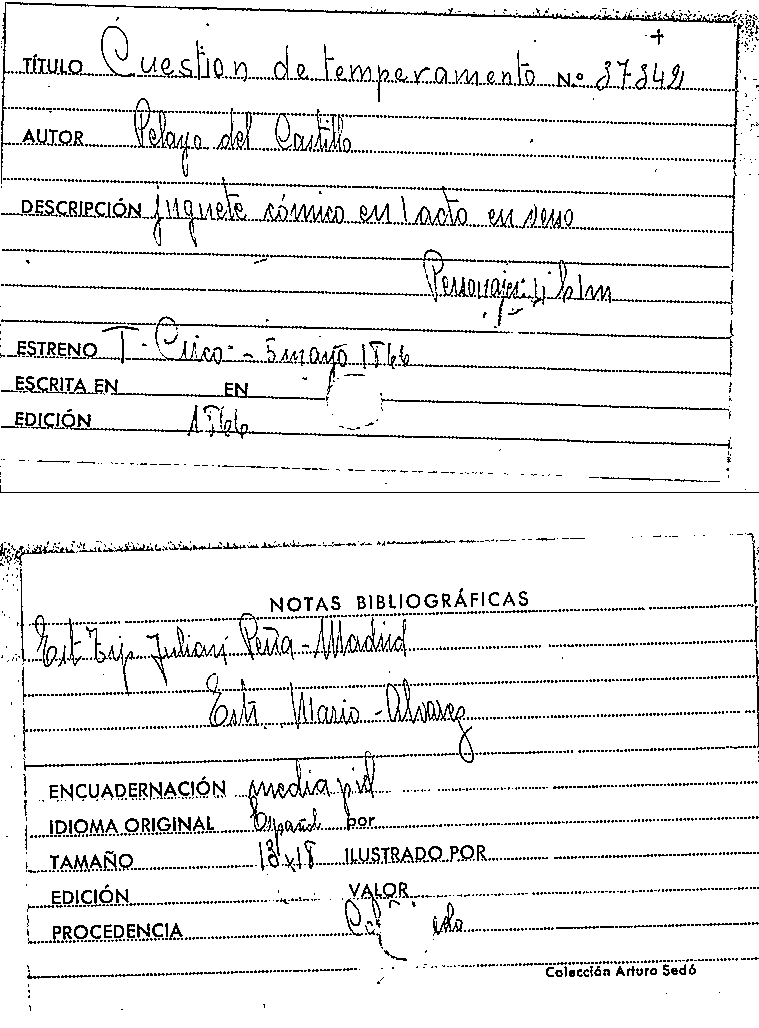 +
TÍTULO Cuestion de temperamento N.º 37342
AUTOR Pelayo del Castillo
DESCRIPCIÓN juguete cómico en 1 acto en verso
Personajes: 4 h 1 m
ESTRENO T. Circo - 5 mayo 1866
ESCRITA EN EN
EDICIÓN 1866
NOTAS BIBLIOGRÁFICAS
Est Tip Julian Peña - Madrid
Estr. Mario - Alvarez
ENCUADERNACIÓN media piel
IDIOMA ORIGINAL Español por
TAMAÑO 13x18 ILUSTRADO POR
EDICIÓN VALOR
PROCEDENCIA
Colección Arturo Sedó